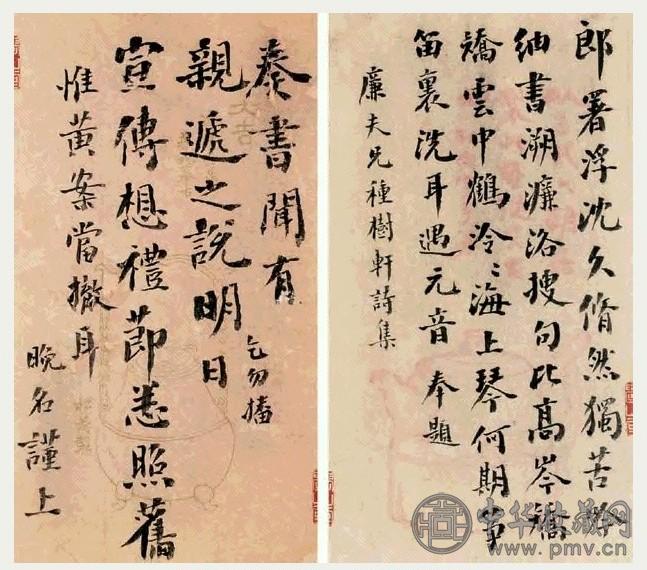 郎署浮沈久翛然獨苦吟
紬書溯濂洛搜句比高岑矯
矯雲中鶴泠〻海上琴何期箏
笛裏洗耳遇元音 奉題
廉夫兄種樹軒詩集
奏書聞有
乞勿播
親遞之說明日
宣傳想禮節悉照舊
惟黃案當撤耳
晚名謹上
中华收藏网
www.pmv.cn